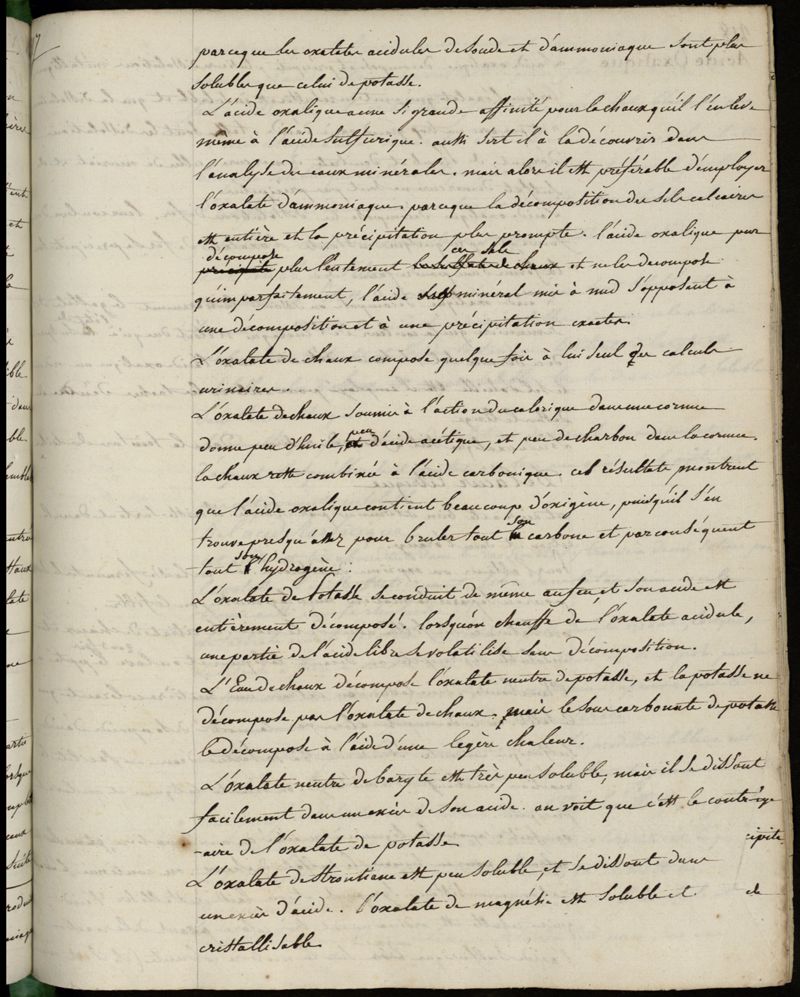 parceque les oxalates acidules de soude et d'ammoniaque sont plus
solubles que celui de potasse.
L'acide oxalique a une si grande affinité pour la chaux qu'il l'enleve
même à l'acide sulfurique. aussi sert il à la découvrir dans
l'analyse des eaux minérales. mais alors il est préférable d'employer
l'oxalate d'ammoniaque parceque la décomposition des sels calcaires
est entière et la précipitation plus prompte. l'acide oxalique pur
décompose ces sels
précipite plus lentement le sulfate de chaux et ne les decompose
qu'imparfaitement, l'acide sulf minéral mis à nud s'opposent à
une décomposition et à une précipitation exactes.
L'oxalate de chaux compose quelque fois à lui seul des calculs
urinaires.
L'oxalate de chaux soumis à l'action du calorique dans une cornue
peu
donne peu d'huile, et d'acide acétique, et peu de charbon dans la cornue.
la chaux reste combinée à l'acide carbonique. ces résultats montrent
que l'acide oxalique contient beaucoup d'oxigène, puisqu'il s'en
trouve presqu'assez pour bruler tout son carbone et par conséquent
tout son hydrogène :
L'oxalate de Potasse se conduit de même au feu, et son acide est
entièrement décomposé. lorsqu'on chauffe de l'oxalate acidule,
une partie de l'acide libre se volatilise sans décomposition.
L'Eau de chaux décompose l'oxalate neutre de potasse, et la potasse ne
décompose pas l'oxalate de chaux. mais le sous carbonate de potasse
le décompose à l'aide d'une legère chaleur.
L'oxalate neutre de baryte est très peu soluble, mais il se dissout
facilement dans un excès de son acide. on voit que c'est le contr
aire de l'oxalate de potasse
cipite
L'oxalate de strontiane est peu soluble, et se dissout dans
un excès d'acide. l'oxalate de magnésie est soluble et
de
cristallisable